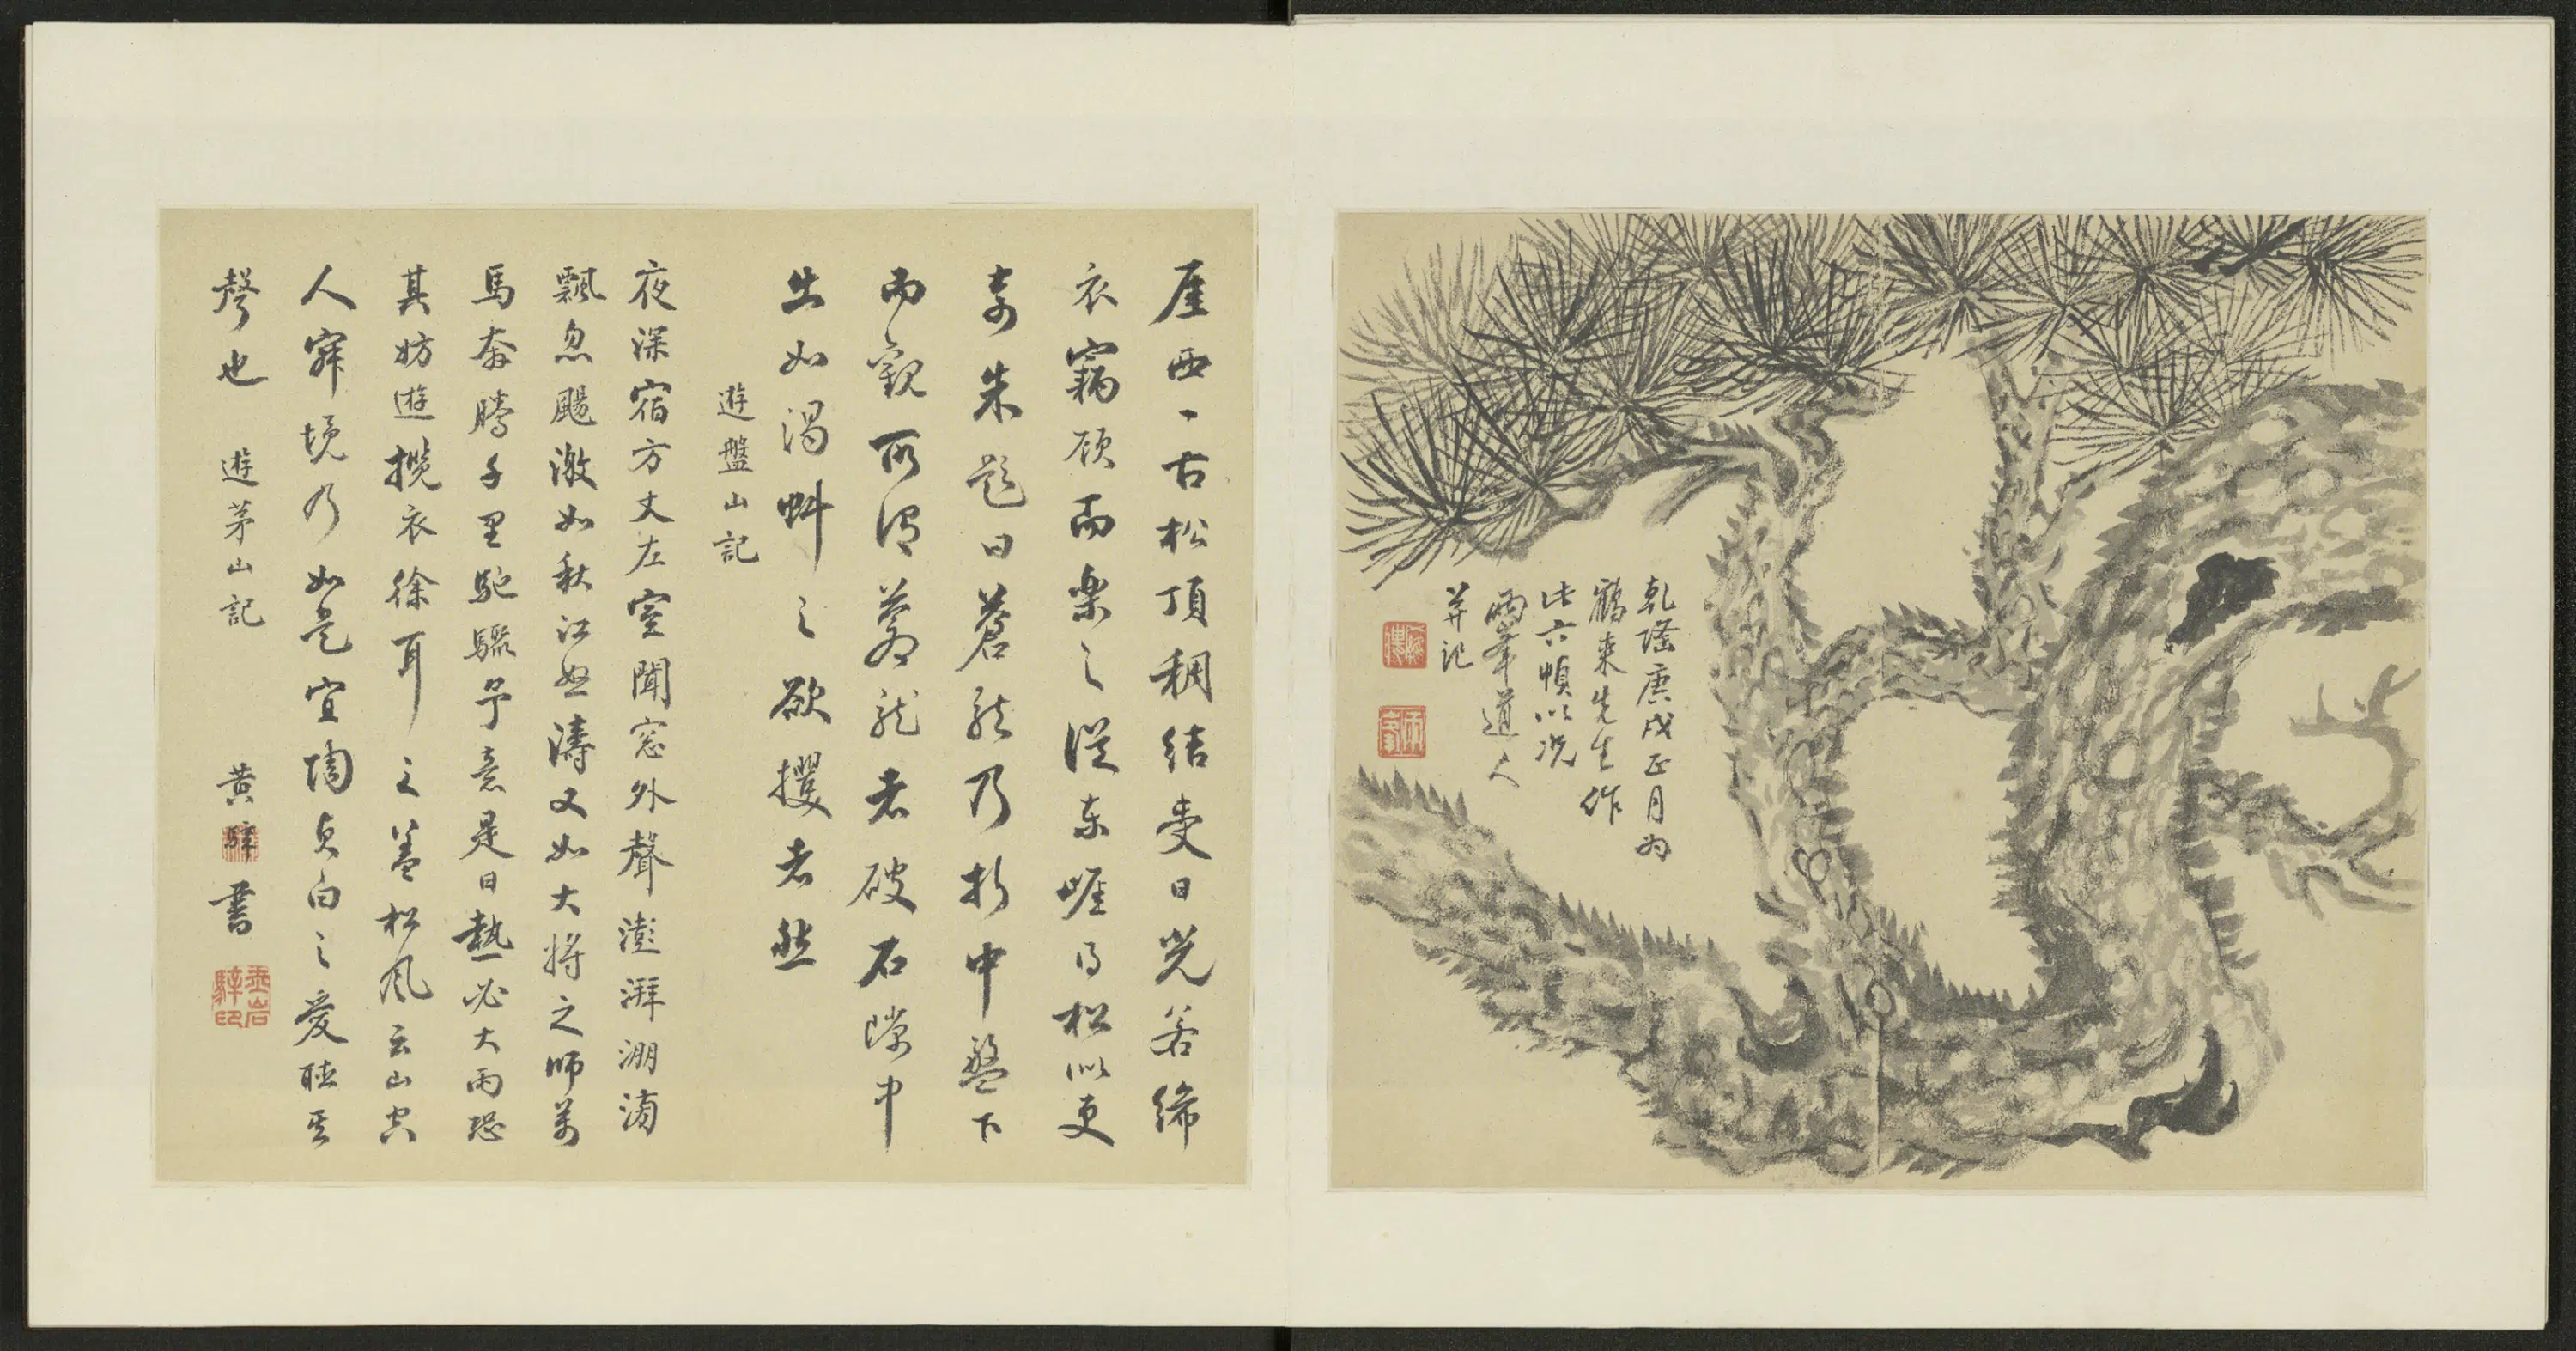 乾隆庚戌正月為
鶴來先生作
此六幀以况
兩峯道人
并記
兩峯
厓西一古松頂稠結受日光若絺
衣竊顧而樂之從東崕得松似更
奇朱題曰蒼龍乃折中盤下
而觀所謂蒼龍者破石隙中
出如渴蚪之欲攫者然
遊盤山記
夜深宿方丈左室聞窓外聲澎湃淜滂
飄忽颺激如秋江怒濤又如大將之帥萬
馬奔騰千里馳驟予意是日熱必大雨恐
其妨遊攬衣徐耳之蓋松風云山空
人寂境乃如是宜陶貞白之愛聽其
聲也 遊茅山記 黄騂書